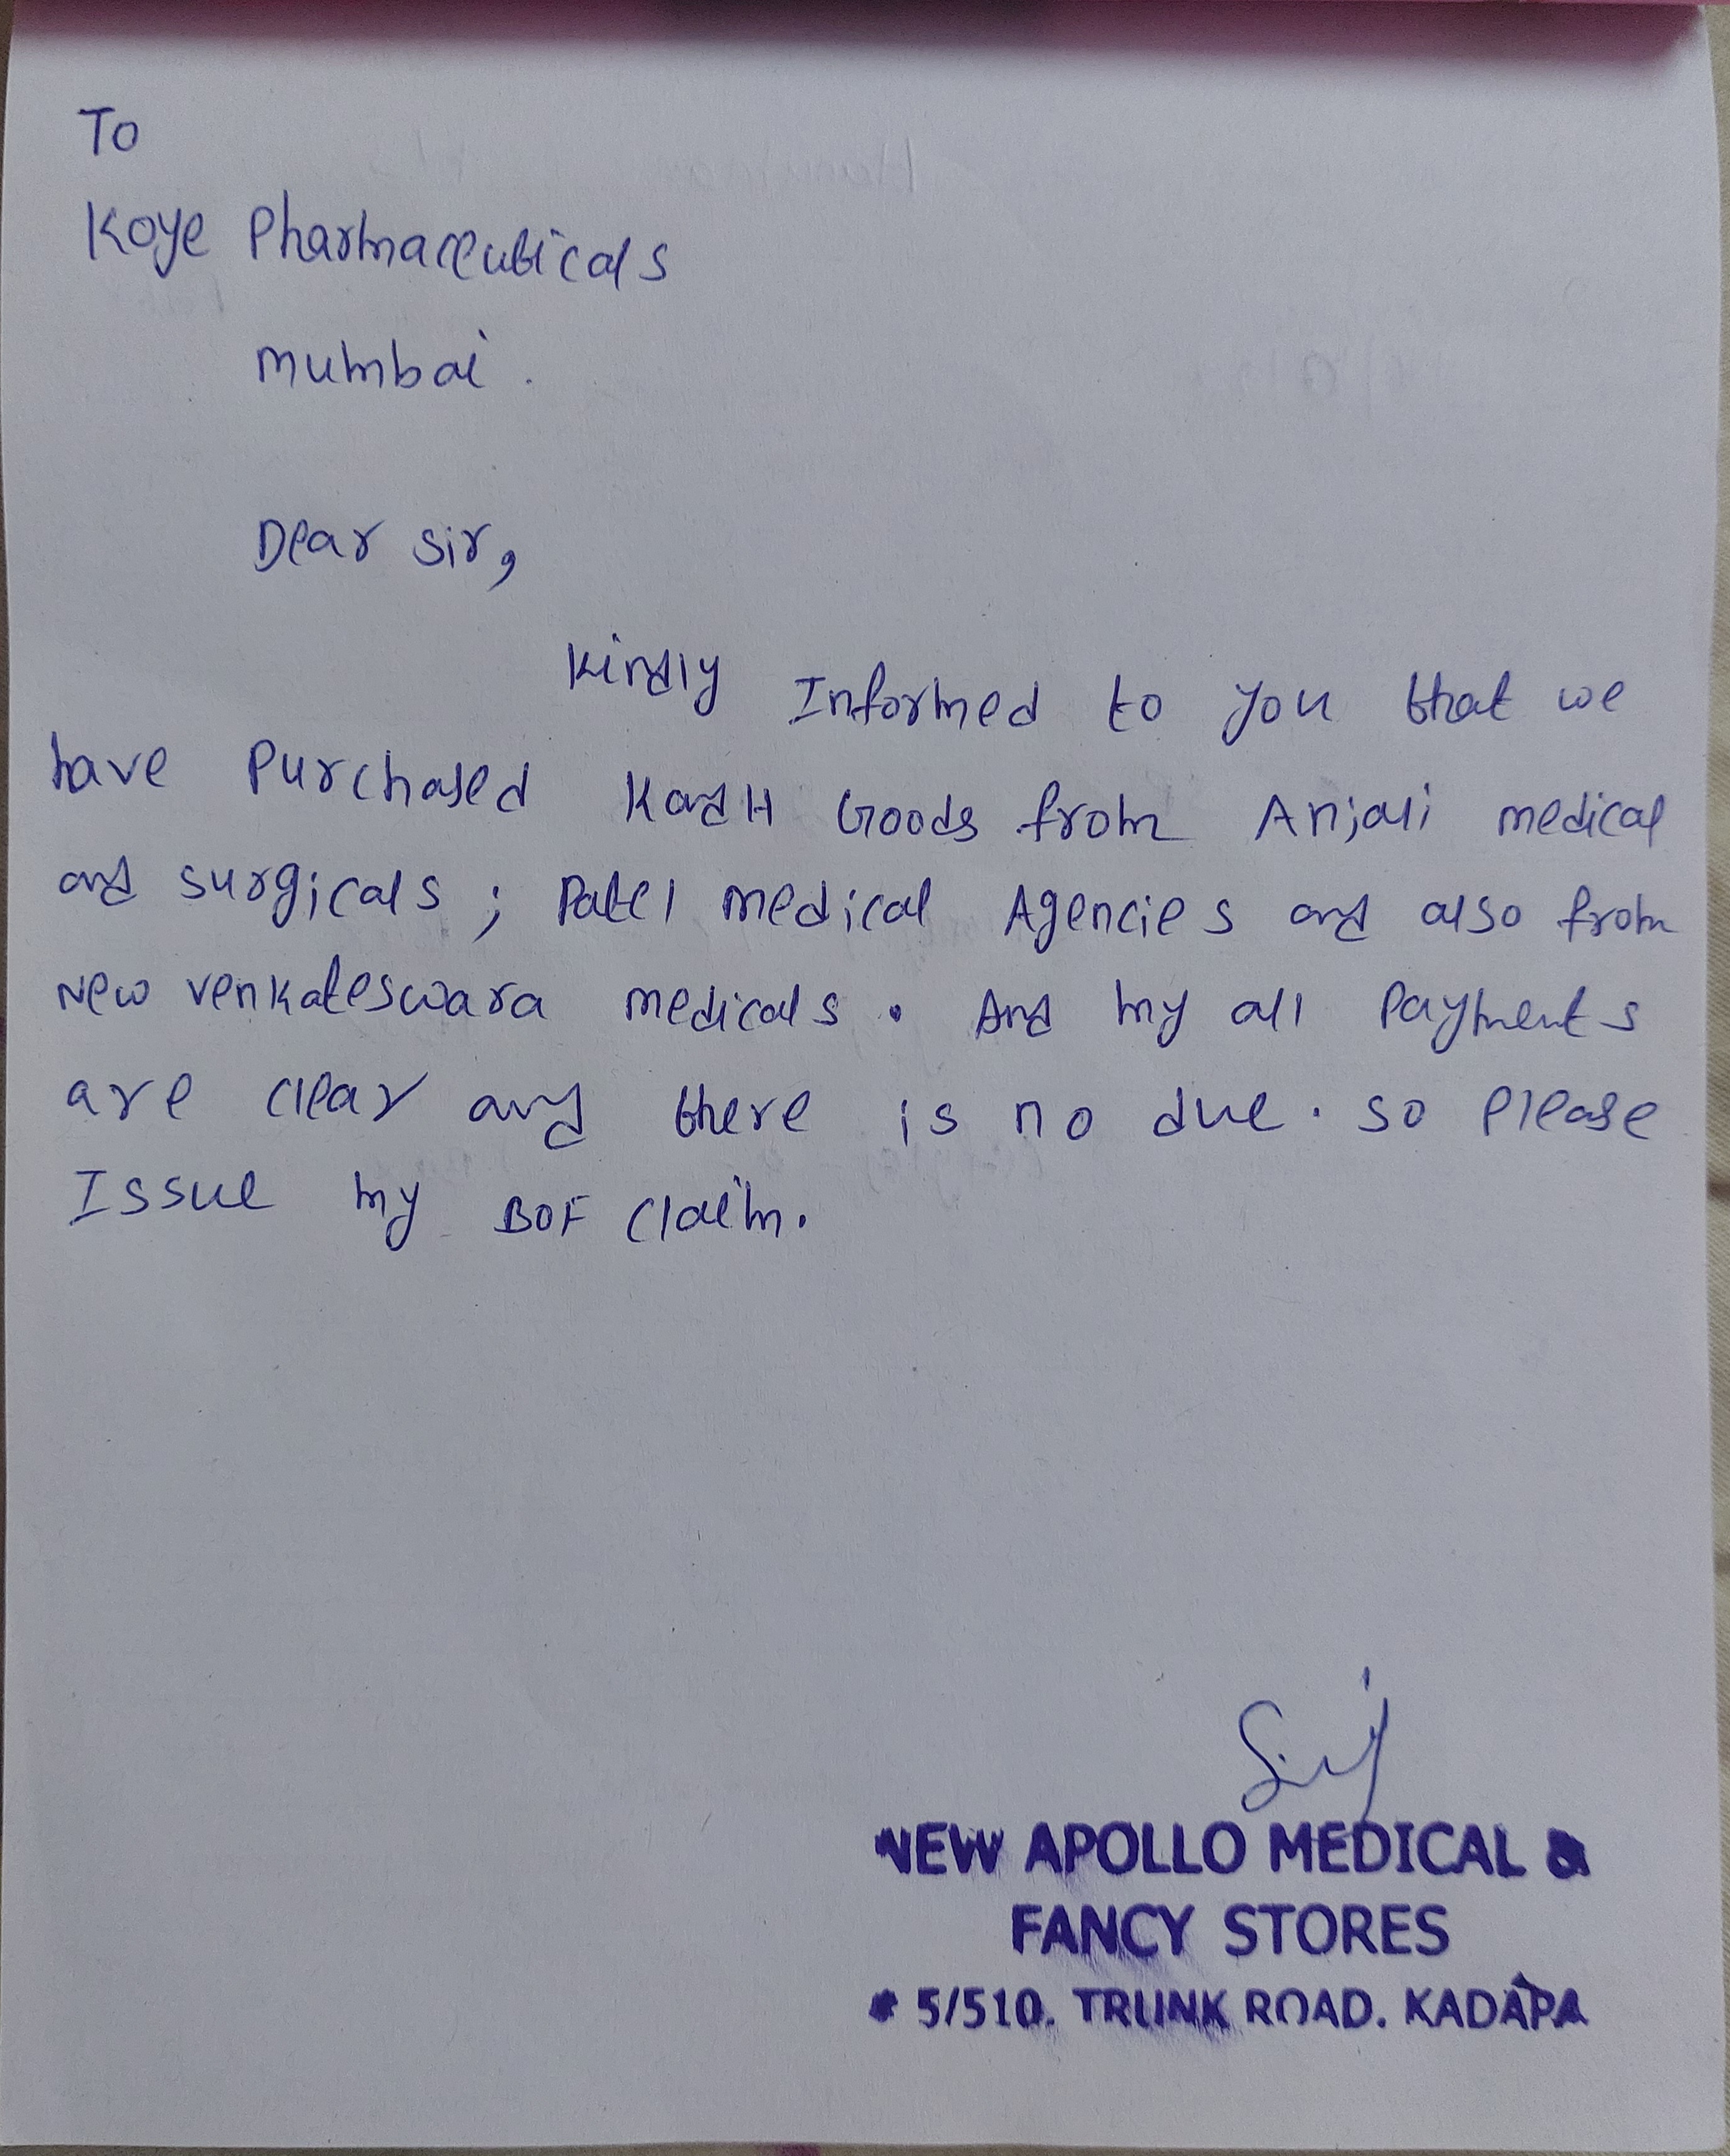 To
Koye Pharmaceuticals
Mumbai.
Dear Sir,
Kindly Informed to you that we
have Purchased KandH Goods from Anjali medical
and surgicals; Patel medical Agencies and also from
New Venkateswara medicals. And my all Payments
are clear and there is no due. So Please
Issue my BOF claim.
NEW APOLLO MEDICAL &
FANCY STORES
# 5/510. TRUNK ROAD. KADAPA